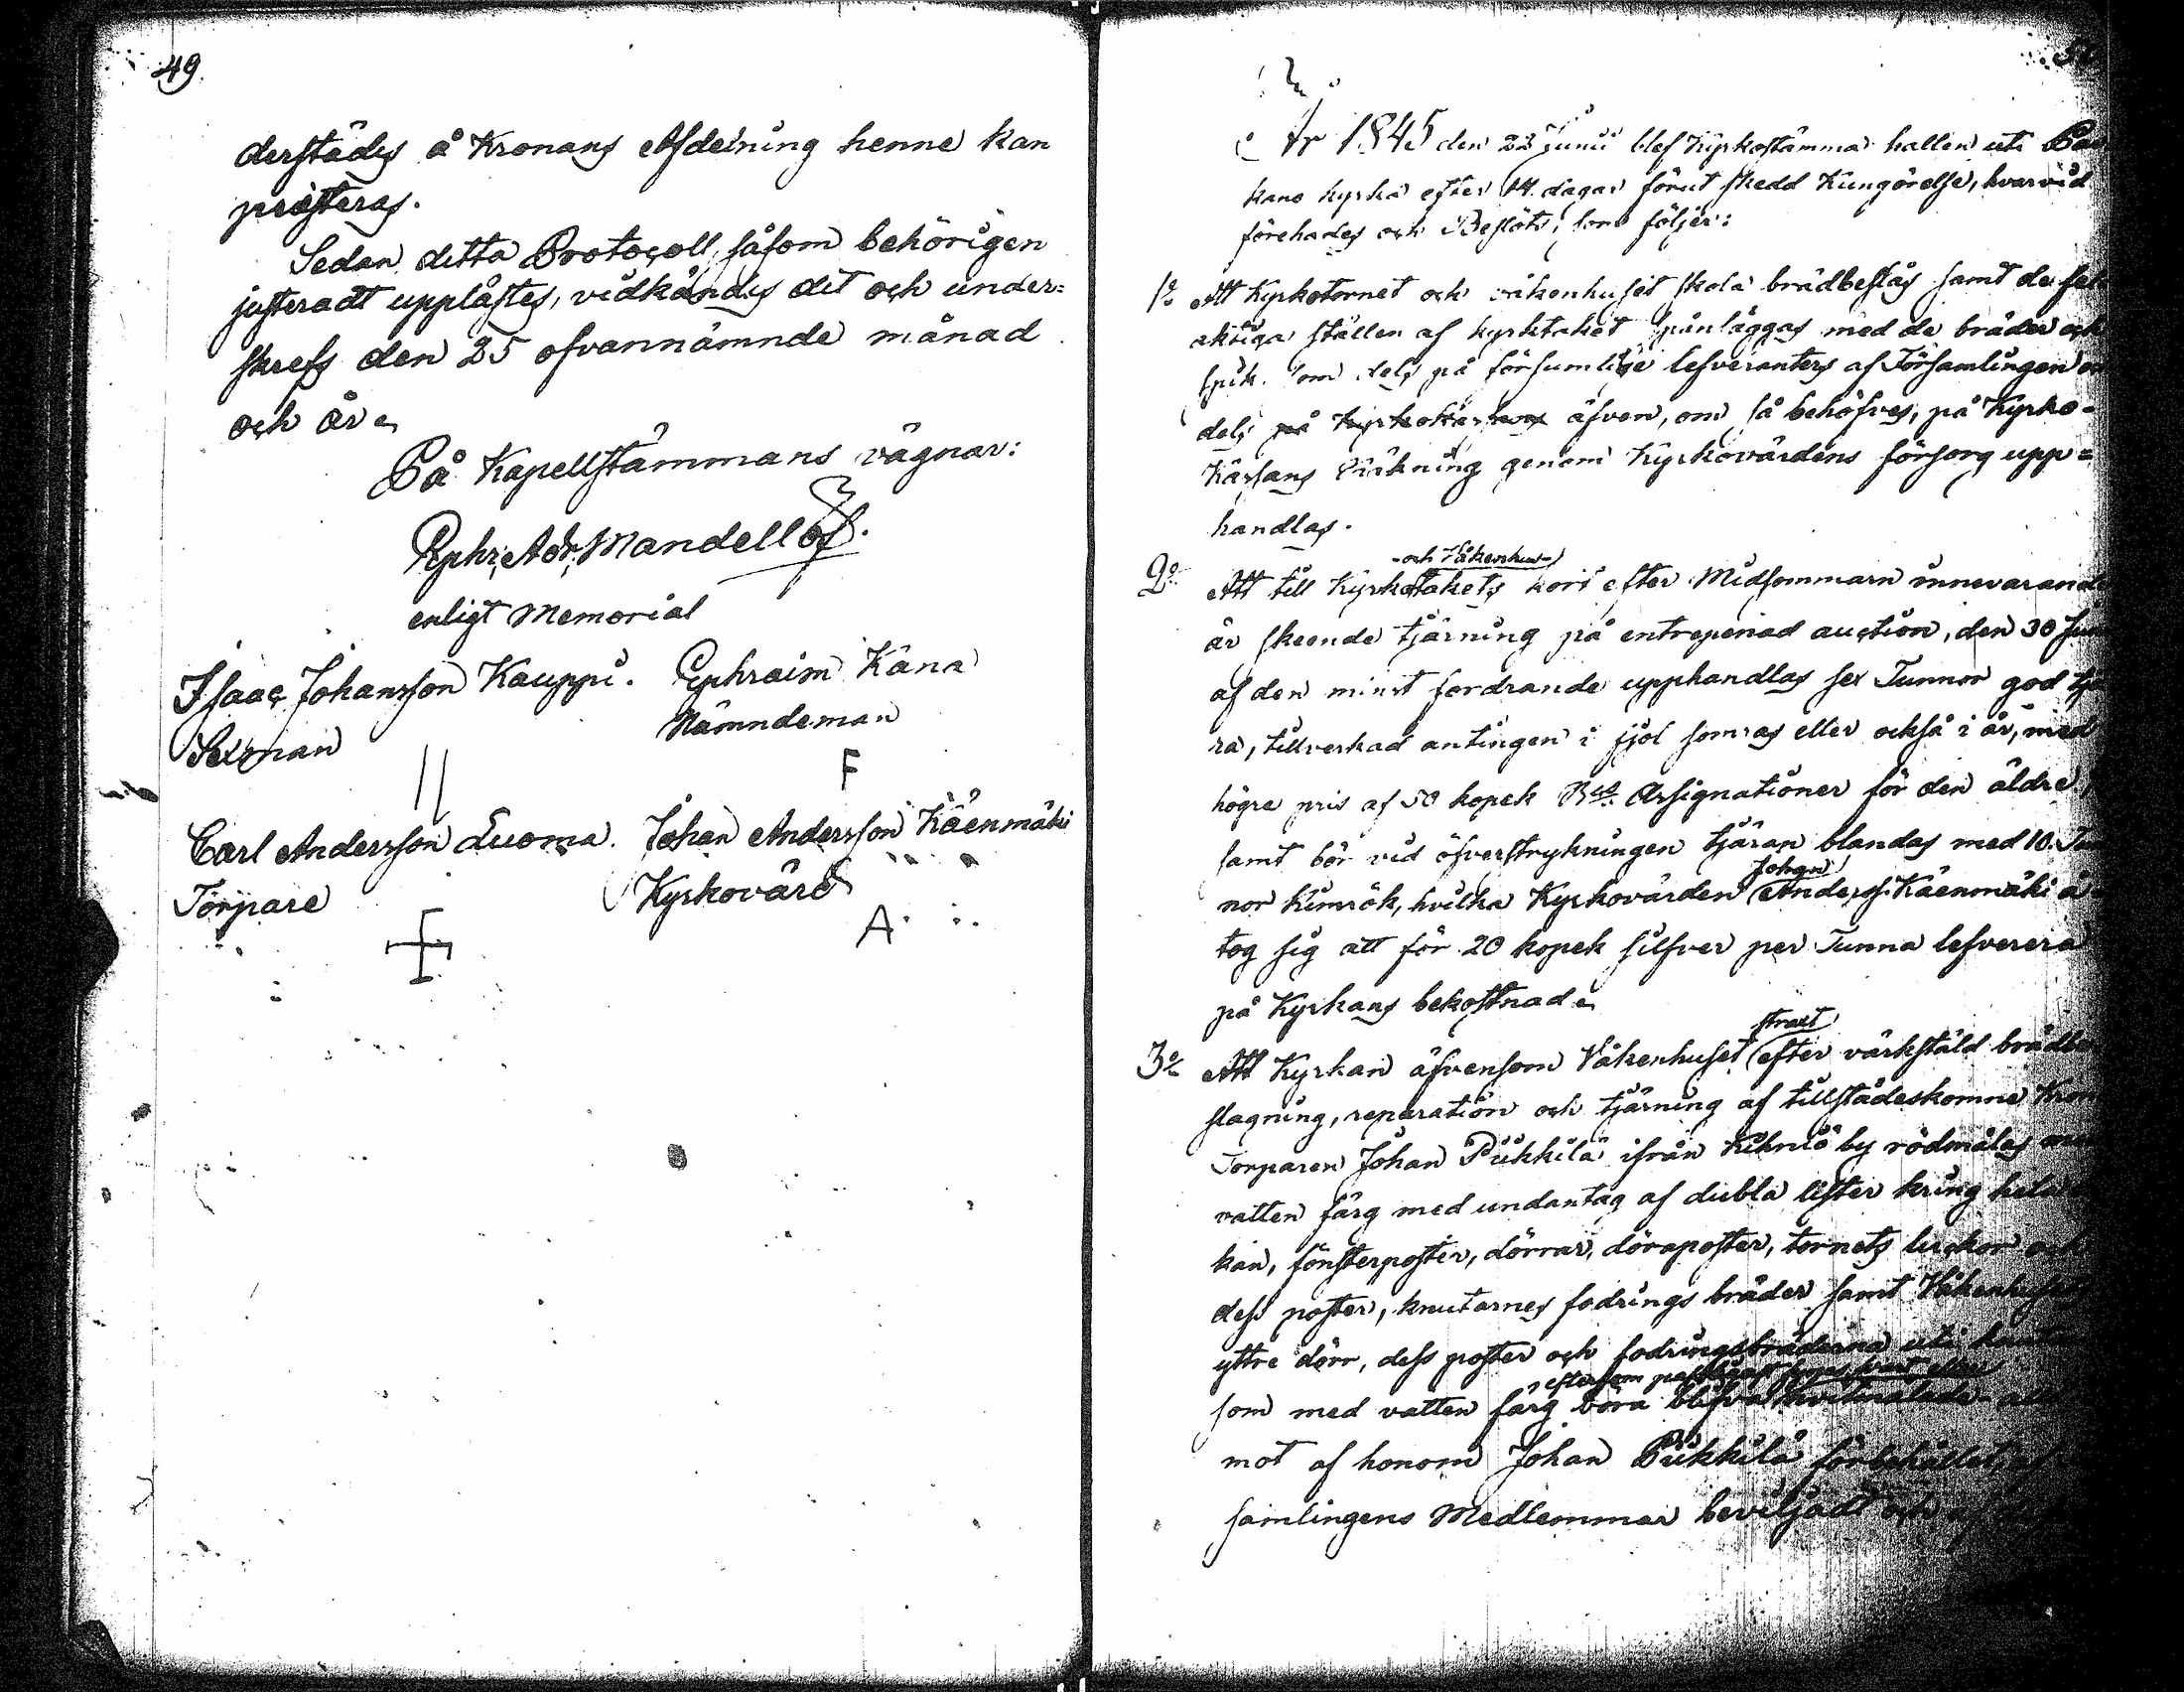 49.
derstädes å Kronans Afdelning henne kan
præsteras.
Sedan detta Protocoll, såsom behörigen
justeradt upplästes, vidkändes det och under=
skrefs den 25 ofvannämnde månad
och år
På Kapellstämmans vägnar:
Ephr. Adr. Mandellöf.
enligt Memorial
Isaac Johansson Kauppi. Ephraim Käna
Sexman Nämndeman
F
Carl Andersson Luoma. Johan Andersson Käenmäki
Torpare Kyrkovärd
A
År 1845 den 22 Junii blef Kyrkostämma hallen uti
kano kyrka efter 14 dagar förut skedd Kungörelse, hvarvid
förehades och Beslöts, som följer:
1o Att Kyrkotornet och våkenhuset skola brädbeslås samt de fel
aktiga ställen af kyrktaket pånläggas med de bräder och
spik som dels på försumlige lefveranters af Församlingen
dels på Kyrkokassans äfven, om så behöfves, på Kyrko-
Kassans Räkning genom Kyrkovärdens försorg upp=
handlas.
-och Våkenhus-
2o Att till Kyrkotakets kort efter Midsommarn innevarande
år skeende tjärning på entreprenad auction, den 30 Jun
af den minst fordrande upphandlas sex Tunnor god tjä
ra, tillverkad antingen i fjol somras eller också i år, med
högre pris af 50 kopek Bco Assignationer för den äldre
samt bör vid öfverstrykningen tjäran blandas med 10. Tun
Johan
nor kimrök, hvilka Kyrkovärden Anders. Käenmäki å
tog sig att för 20 kopek silfver per Tunna lefverera
på Kyrkans bekostnad
straxt
3o Att Kyrkan äfvensom Våkenhuset efter värkstäld brädbe
slagning, reparation och tjärning af tillstädeskomne Kron
Torparen Johan Pükkilä ifrån Kihniö by rödmålas
vatten färg med undantag af dubla lister kring hela
kan, fönsterposter, dörrar, döraposter, tornets luckor och
dess poster, knutarnes fodrings bräder samt Våkenhusets
yttre dörr, dess poster och fodringsbräderna uti
eftersom
som med vatten färg böra blifva
mot af honom Johan Pükkilä förbehållet,
samlingens Medlemmar beviljadt och